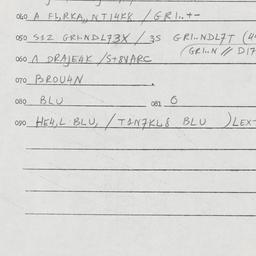 040 A FL,RKA,, NT14K8 / GRI..+-
050 S1Z GRI·NDL73X / 3S GRI..NDL7T (4
(GRI..N // D17
060 A DRAJE4K / S+8VARC
070 BROU4N
080 BLU 081 O
090 HE4,L BLU, / T1N7KL8 BLU ) LEX-